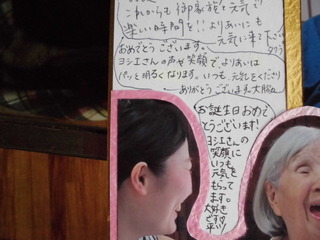 これからも御家族と元気で
楽しい時間を!!よりあいにも
元気に来て下さい
おめでとうございます。
ヨシエさんの声や笑顔で、よりあいは
パッと明るくなります。いつも元気をくださり
ありがとうございます。大脇
お誕生日おめで
とうございます!
ヨシエさんの
笑顔に
いつも
元気を
もらって
ます。
大好き
です♡